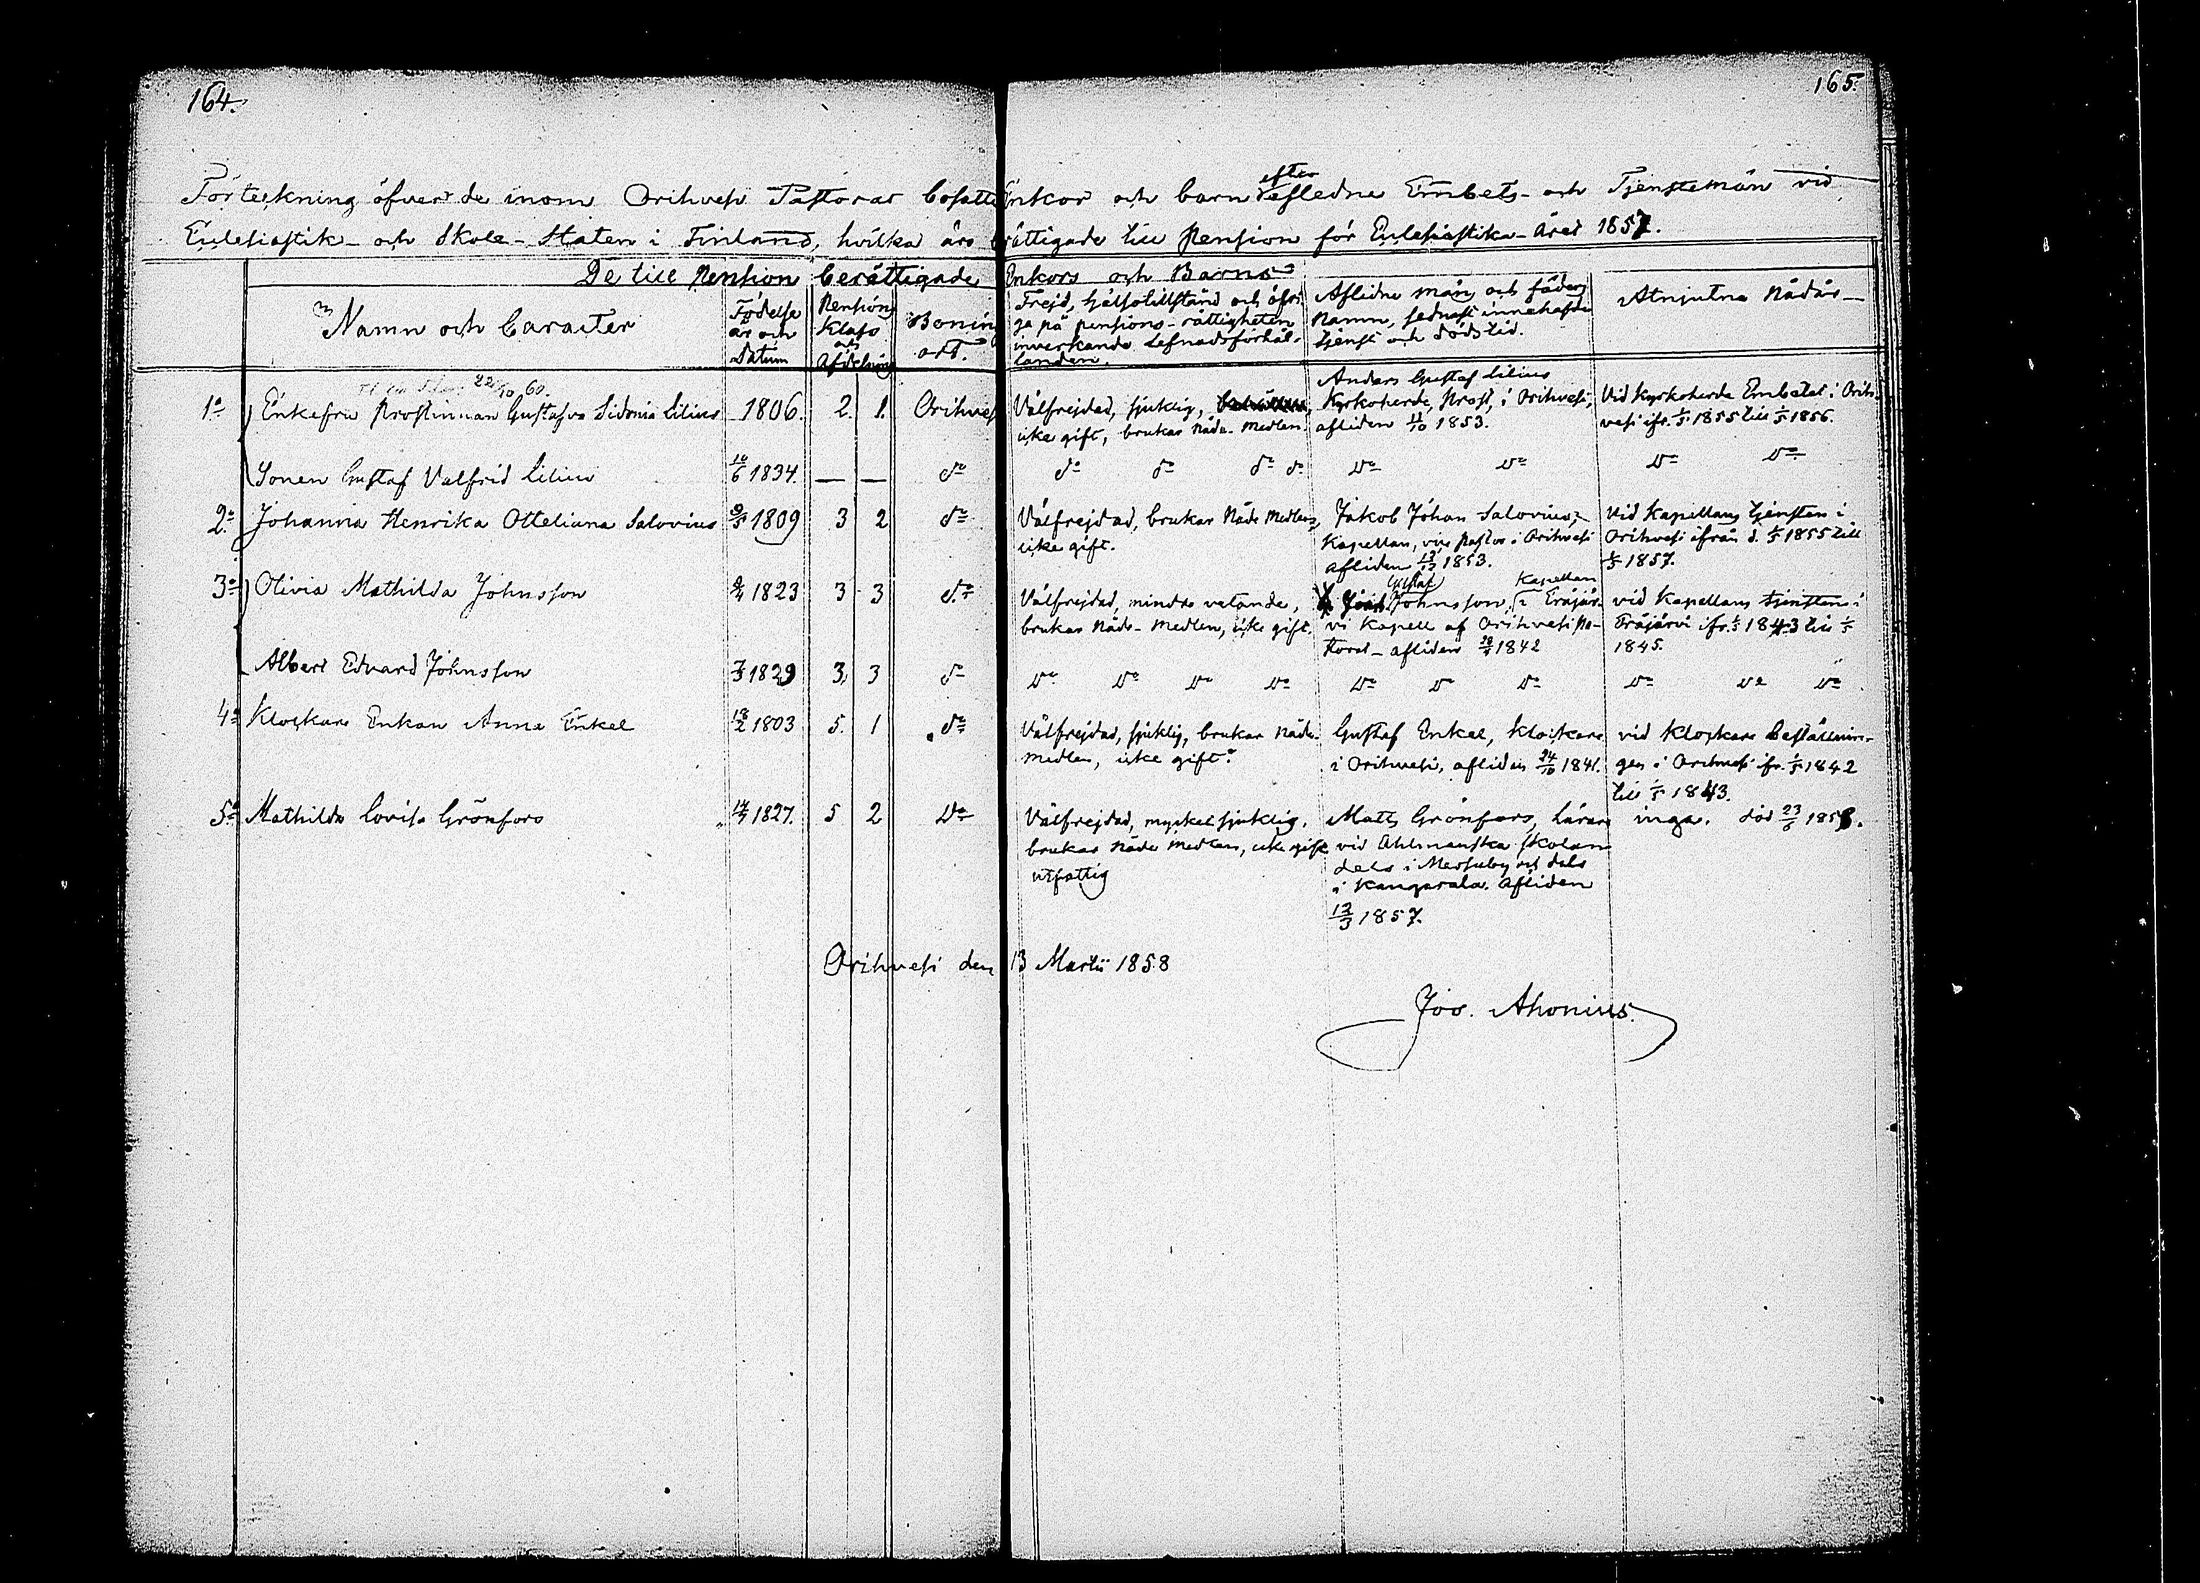 164.
165.
Förteckning öfver de inom Orihvesi Pastorat bosatta Enkor och barn efter afledne Embets- och Tjenstemän vid
Ecclesiastik- och Skole-Staten i Finland, hvilka äro berättigade till Pension för Ecclesiastik-Året 1857.
De till Pension berättigade Enkors och Barns
Namn och Caracter
Födelse år och Datum
Pensions Klass och Afdelning
Bonings ort.
Frejd, hälsotillstånd och öfri-
ga på pensions-rättigheten
inverkande Lefnadsförhål-
landen.
Aflidne mäns och fäders
Namn, sednast innehafda
tjenst och dödstid.
Atnjutna Nådår
22/10 60.
1o Enkefru Prostinnan Gustafva Sidonia Lilius 1806. 2. 1. Orihvesi
Välfrejdad, sjuklig,
icke gift, brukar Nåde-Medlen.
Anders Gustaf Lilius
Kyrkoherde, Prost, i Orihvesi,
afliden 11/10 1853.
Vid Kyrkoherde Embetet i Orih-
vesi ifr. 1/5 1855 till 1/5 1856.
Sonen Gustaf Valfrid Lilius 10/6 1834. — — do do do do do Do Do Do Do
2o Johanna Henrika Otteliana Salovius 9/5 1809 3 2 do
Välfrejdad, brukar Nåde Medlen,
icke gift.
Jakob Johan Salovius,
Kapellan, vice Pastor i Orihvesi
afliden 13/12 1853.
Vid Kapellans tjensten i
Orihvesi ifrån d. 1/5 1855 till
1/5 1857.
3o Olivia Mathilda Johnsson 9/4 1823 3 3 do
Välfrejdad, mindre vetande,
brukar Nåde-Medlen, icke gift.
Gustaf Johnsson, Kapellan i Eräjär-
vi Kapell af Orihvesi Pa-
storat - afliden 28/4 1842
vid Kapellans tjensten i
Eräjärvi ifr. 1/5 1843 till 1/5
1845.
Albert Edvard Johnsson 7/3 1829 3, 3 do Do Do Do Do Do Do Do Do Do Do
4o Klockare Enkan Anna Enkel 18/2 1803 5. 1 do
Välfrejdad, sjuklig, brukar Nåde-
medlen, icke gift.
Gustaf Enkel, Klockare
i Orihvesi, afliden 24/10 1841.
vid Klockare Beställnin-
gen i Orihvesi ifr. 1/5 1842
till 1/5 1843.
5o Mathilda Lovisa Grönfors 14/7 1827. 5 2 Do
Välfrejdad, mycket sjuklig,
brukar Nåde Medlen, icke gift
utfattig
Matts Grönfors, Lärare
vid Ahlmanska skolan
dels i Messuby och dels
i Kangasala. Afliden
12/3 1857.
inga. död 23/6 1858.
Orihvesi den 13 Martii 1858
Jos. Ahonius.